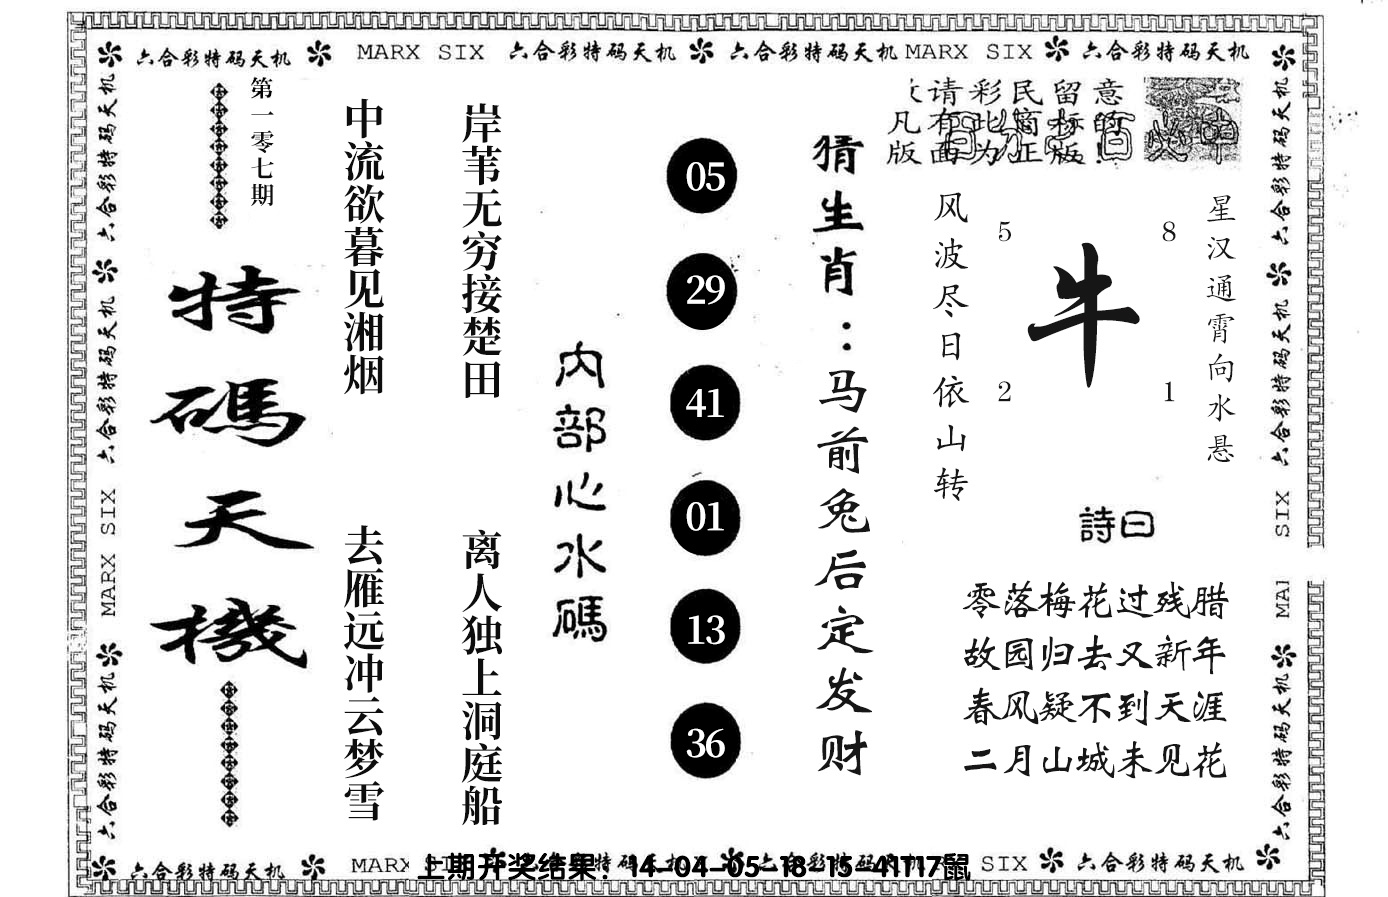 六合彩特码天机 MARX SIX 六合彩特码天机 六合彩特码天机 MARX SIX 六合彩特码天机
六合彩特码天机
六合彩特码天机
MARX SIX
六合彩特码天机
第一零七期
特碼天機
中流欲暮见湘烟
去雁远冲云梦雪
岸苇无穷接楚田
离人独上洞庭船
内部心水碼
05
29
41
01
13
36
猜生肖：马前兔后定发财
请彩民留意
凡有此商标的
版面为正版!
风波尽日依山转
5
8
牛
2
1
星汉通霄向水悬
詩曰
零落梅花过残腊
故园归去又新年
春风疑不到天涯
二月山城未见花
六合彩特码天机
六合彩特码天机
SIX
六合彩特码天机
六合彩特码天机 MARX
上期开奖结果：14-04-05-18-15-41T17鼠
SIX 六合彩特码天机